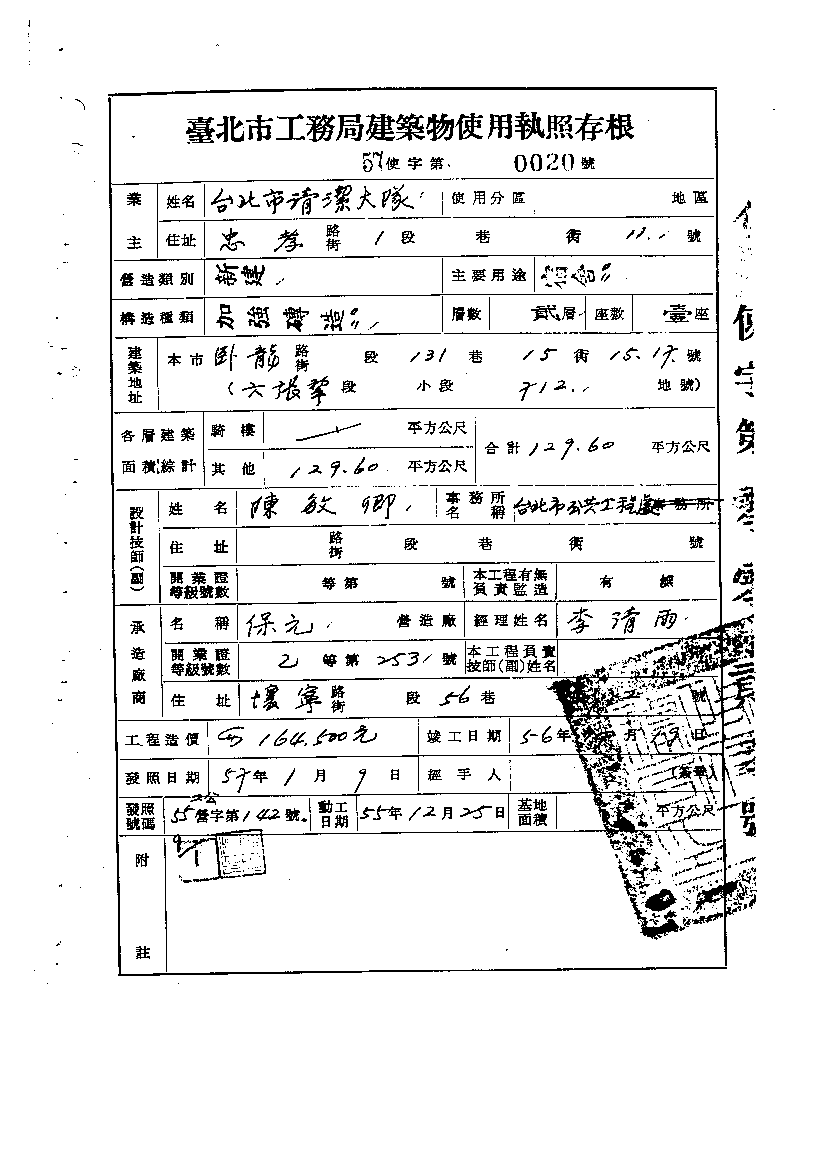 臺北市工務局建築物使用執照存根
57使字第 0020號
業主 姓名 台北市清潔大隊 使用分區 地區
住址 忠孝 路街 1段 巷 街 號
營造類別 新建 主要用途 宿舍
構造種類 加強磚造 層數 貳層 座數 壹座
建築地址 本市 臥龍 路街 段 131巷 15街 15.17號
(六張犂段 小段 地號)
各層建築面積綜計 騎樓 平方公尺 合計129.60 平方公尺
其他 129.60 平方公尺
設計技師(副) 姓名 陳敏卿 事務所名稱 台北市公共工程處事務所
住址 路街 段 巷 街 號
開業證等級號數 等第 號 本工程有無負責監造 有
承造廠商 名稱 保元 營造廠 經理姓名 李清雨
開業證等級號數 乙等第2531號 本工程負責技師(副)姓名
住址 路街 段 56巷 號
工程造價 164,500元 竣工日期 56年 月19日
發照日期 57年1月9日 經手人 (簽章)
發照號碼 55營字第142號 動工日期 55年12月25日 基地面積 平方公尺
附註
1